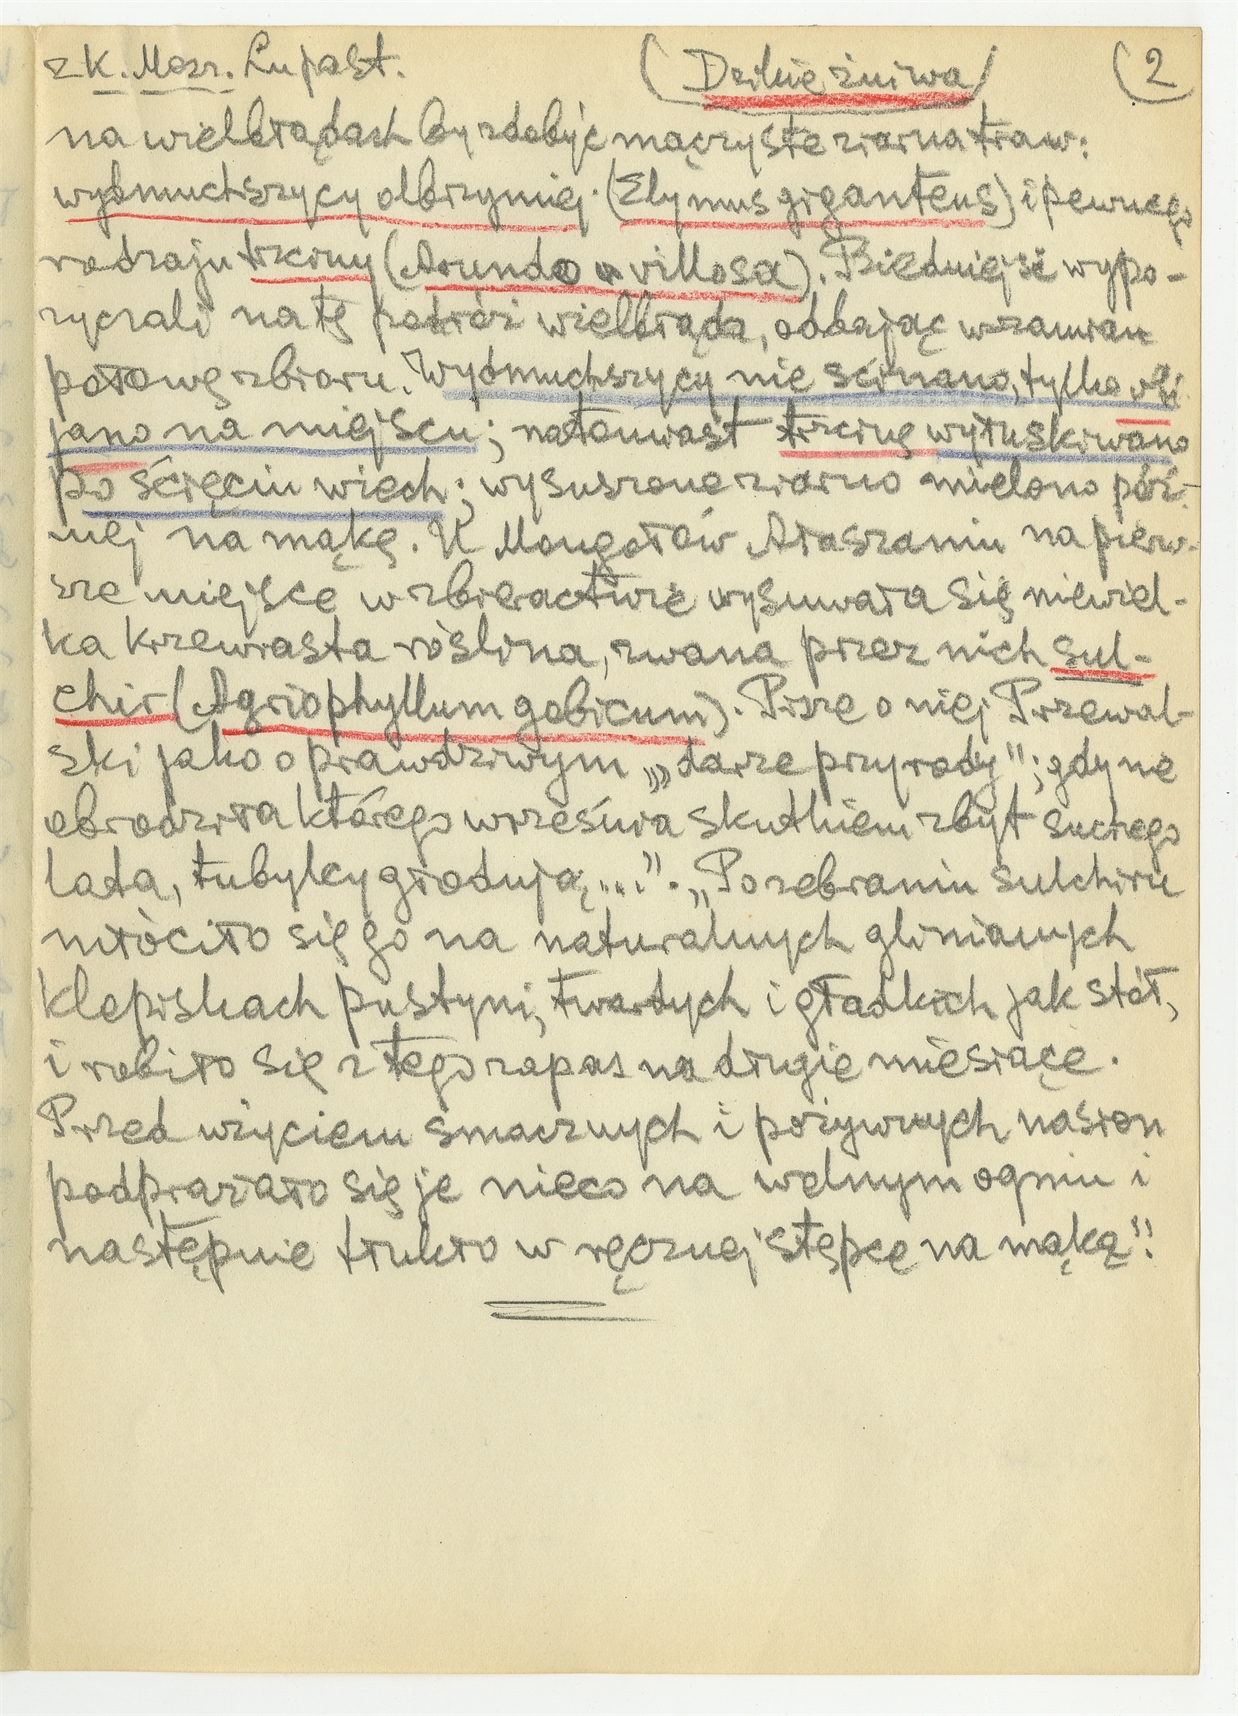 z K. Mosz. Lu past. (Dzikie żniwa) (2)
na wielbłądach by zdobyć mączyste ziarna traw:
wydmuchszycy olbrzymiej (Elymus giganteus) i pewnego
rodzaju trzciny (Arundo villosa). Biedniejsi wypo-
życzali na tę podróż wielbłąda, oddając wzamian
połowę zbioru. Wydmuchszycy nie ścinano, tylko obi
jano na miejscu; natomiast trzcinę wyłuskiwano
po ścięciu wiech; wysuszone ziarno mielono póź-
niej na mąkę. U Mongołów Ałaszaniu na pierw-
sze miejsce w zbieractwie wysuwała się niewiel-
ka krzewiasta roślina, zwana przez nich sul-
chir (Agriophyllum gobicum). Pisze o niej Przewal-
ski jako o prawdziwym „darze przyrody"; gdy nie
obrodziła którego września skutkiem zbyt suchego
lata, tubylcy głodują...". „Po zebraniu sulchiru
młóciło się go na naturalnych glinianych
klepiskach pustyni, twardych i gładkich jak stół,
i robiło się z tego zapas na długie miesiące.
Przed użyciem smacznych i pożywnych nasion
podprażało się je nieco na wolnym ogniu i
następnie tłukło w ręcznej stępce na mąkę".